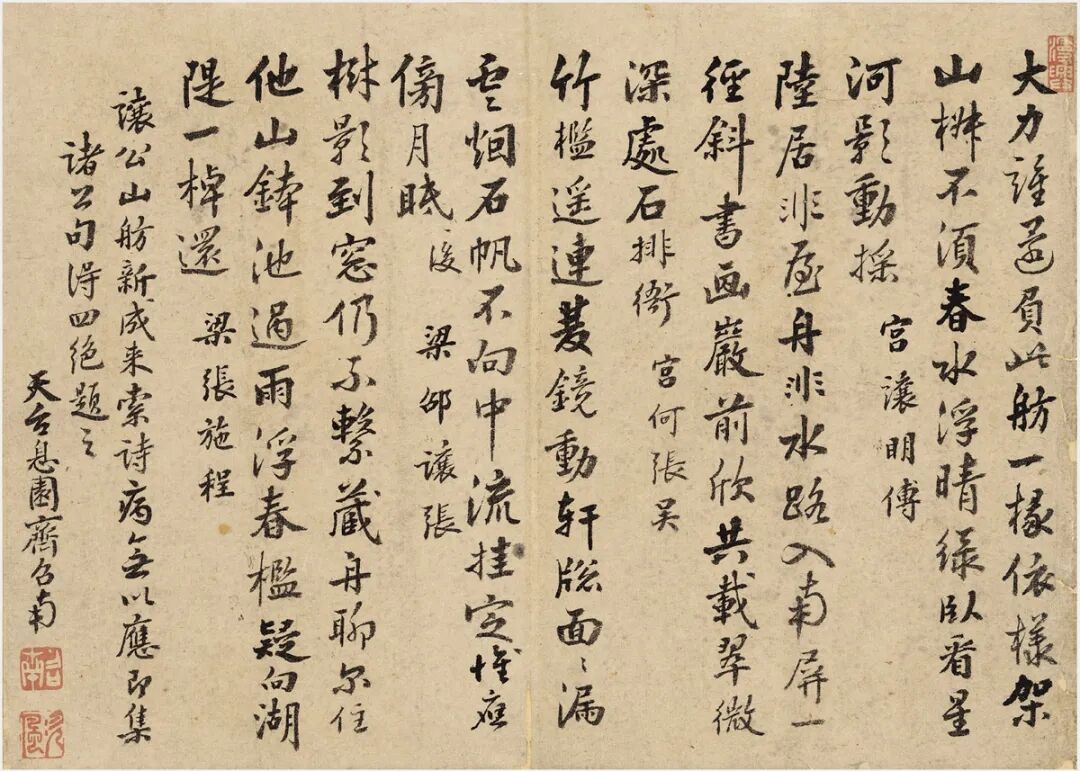 大力誰負此舫一椽依樣架
山椒不須春水浮晴綠臥看星
河影動搖 宮讓明傅
陸居非屋舟非水路入南屏一
徑斜書画巖前欣共載翠微
深處石排衙 宮何張吳
竹檻遥連菱鏡動軒牕面〻漏
雲烟石帆不向中流挂定惟應
傍月眠 梁邵讓張
樹影到窓仍不繫藏舟聊尔住
他山鉢池過雨浮春檻疑向湖
隄一棹還 梁張施程
讓公山舫新成来索詩病無以應即集
諸公句得四絶題之
天台息園齊召南
召南
次風